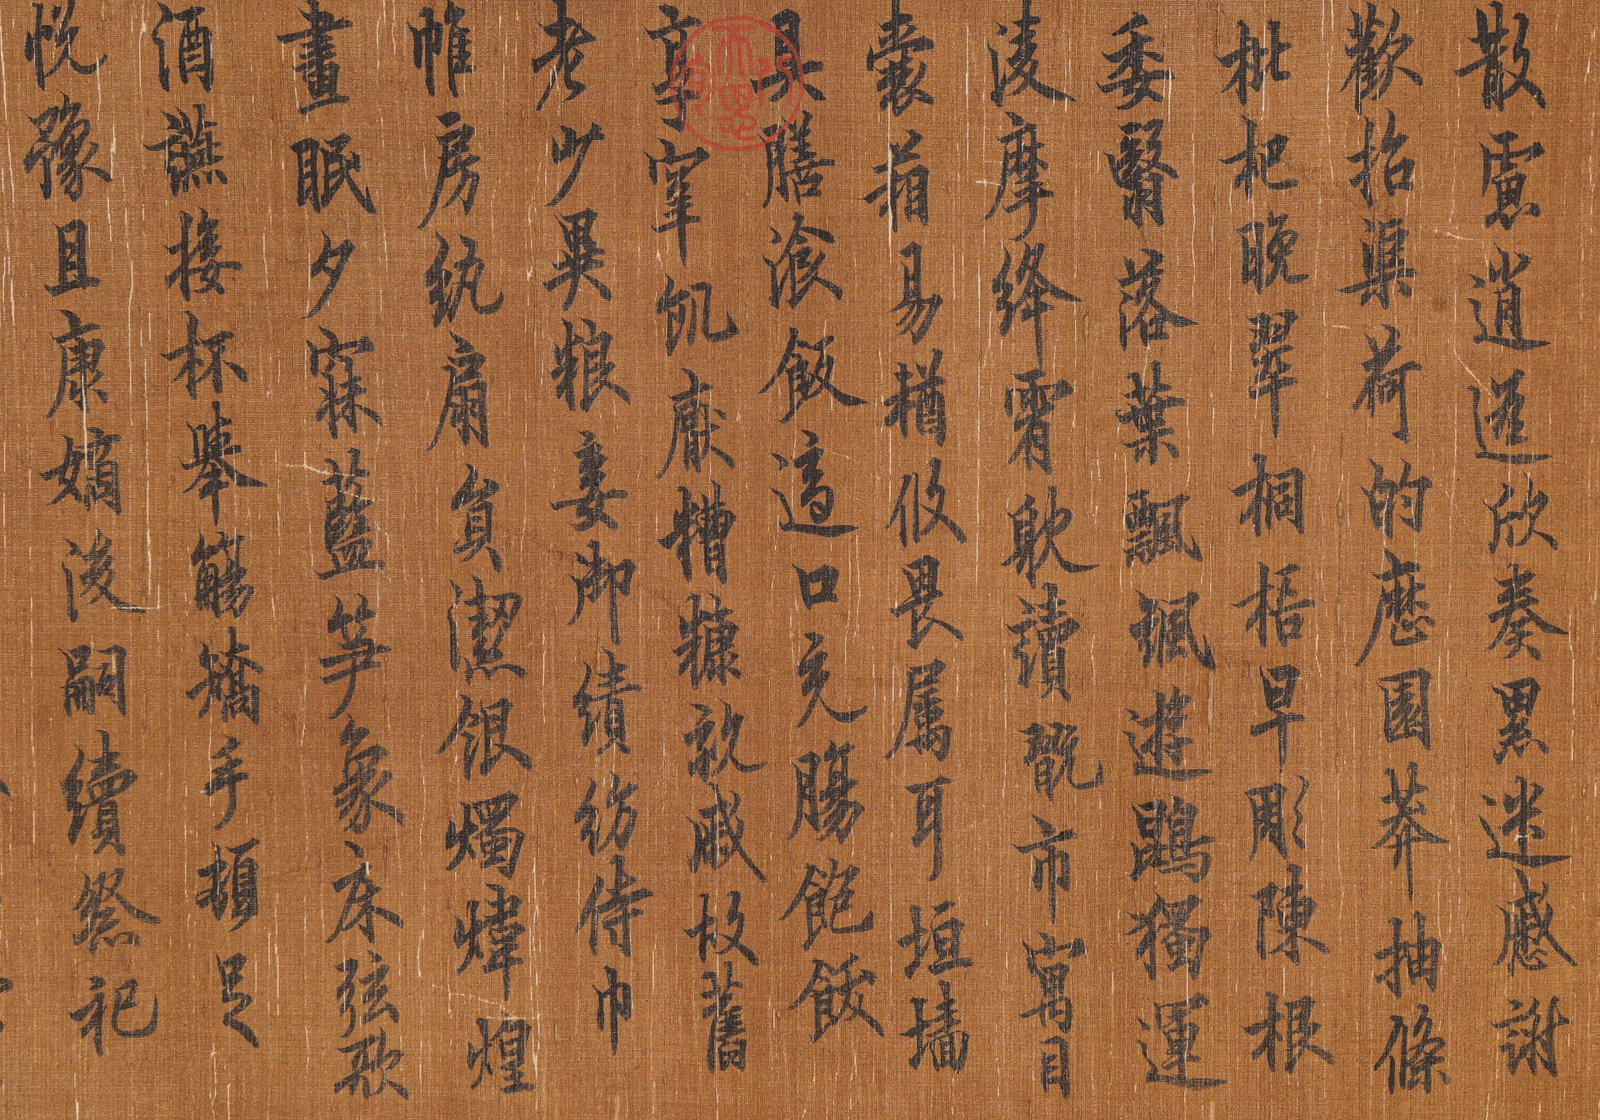 散慮逍遥欣奏累迷慼謝
歡招渠荷的歷園莽抽條
枇杷晚翠桐梧早彫陳根
委翳落葉飄颻遊鵾獨運
淩摩絳霄耽讀翫市寓目
囊箱易輶攸畏属耳垣墻
具膳飡飯適口充腸飽飫
享宰飢厭糟糠親戚故舊
老少異粮妾御績紡侍巾
帷房紈扇員潔銀燭煒煌
晝眠夕寐藍笋象床弦歌
酒讌接杯舉觴矯手頓足
悦豫且康嫡後嗣續祭祀